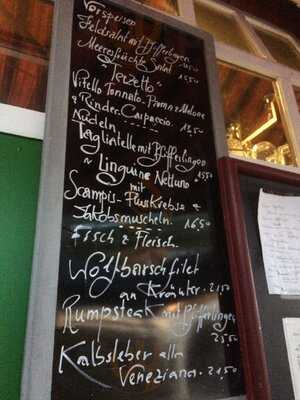 Vorspeisen
Feldsalat mit Pfifferlingen
Meeresfrüchte Salat
"Terzetto"
Vitello Tonnato-Parma & Melone
& Rinder Carpaccio.
Nudeln
Tagliatelle mit Pfifferlingen
~ Linguine Nettuno
mit
Scampis-Flusskrebse &
Jakobsmuscheln. 16,50
Fisch & Fleisch
Wolfbarschfilet
an Kräuter. 21,50
Rumpsteak mit Pfifferlingen
23,50
Kalbsleber alla
Veneziana. 21,50